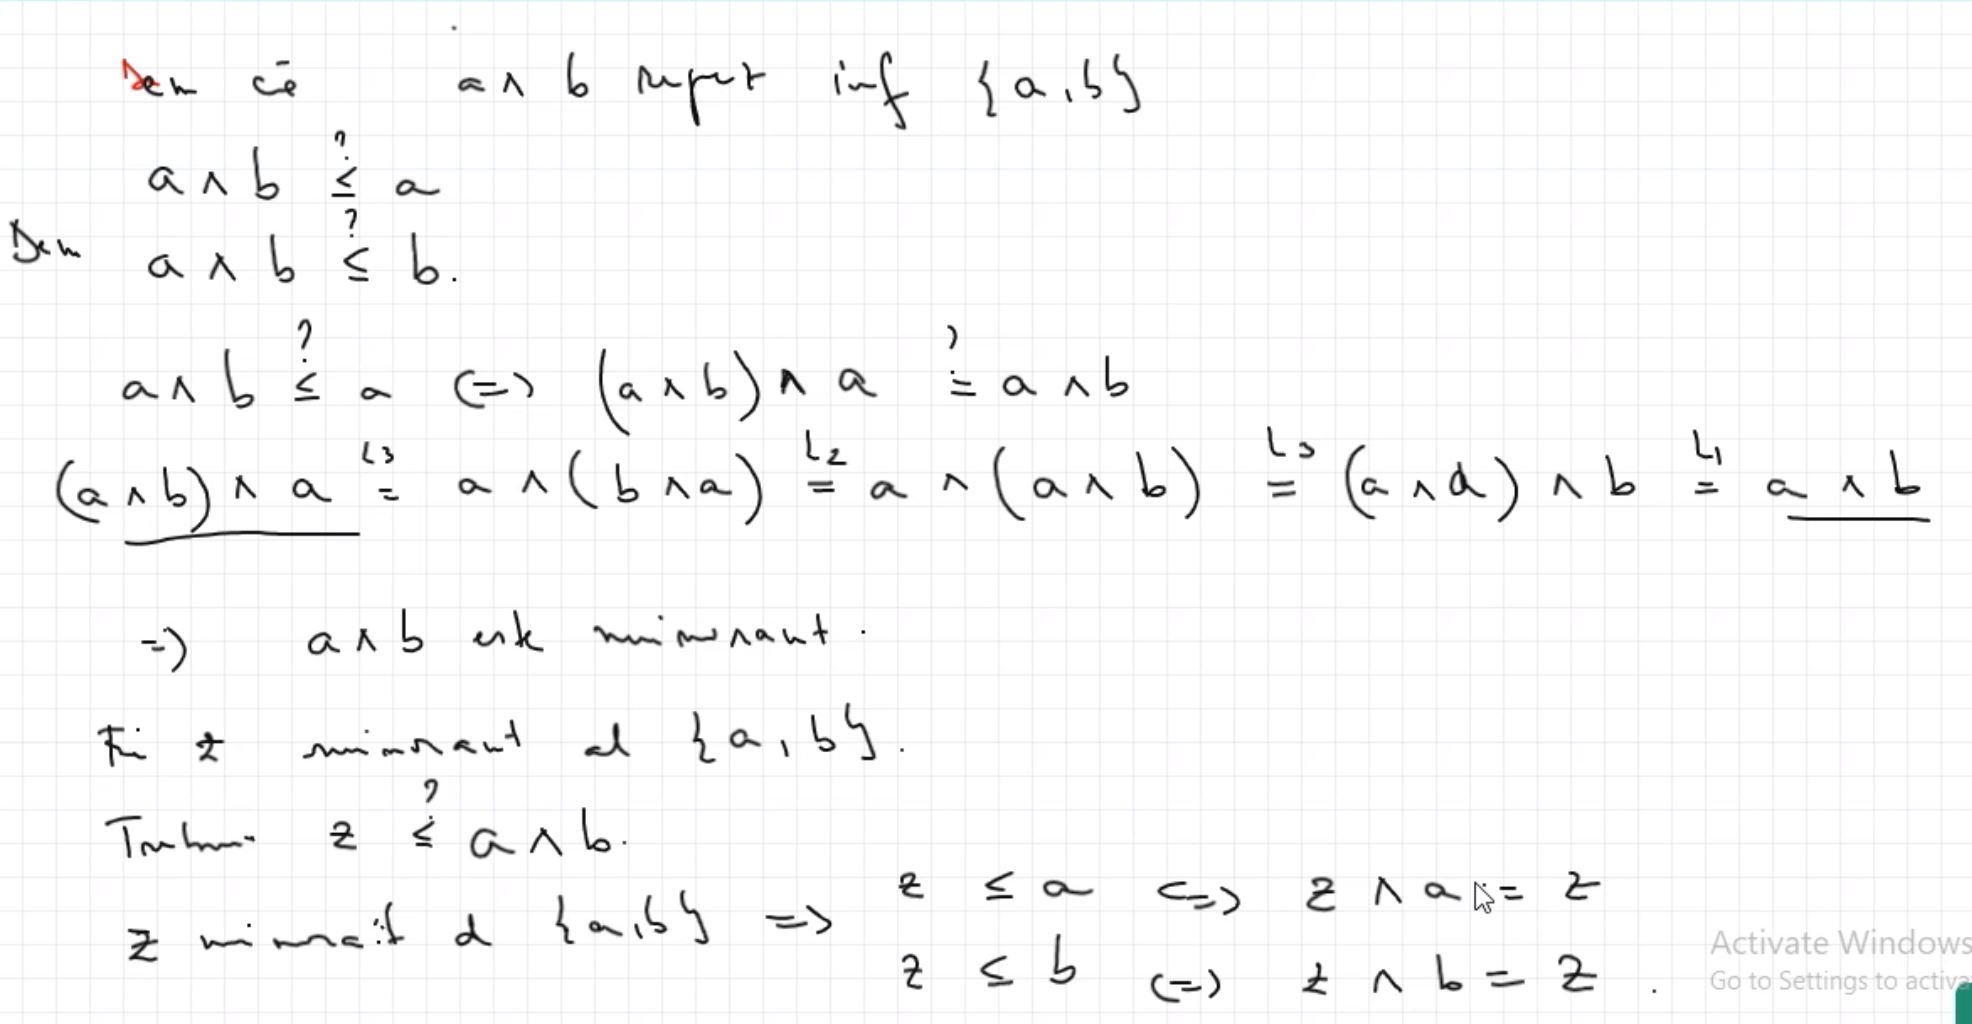 Dem că a ∧ b repret inf {a, b}
a ∧ b ≤? a
Dem a ∧ b ≤? b.
a ∧ b ≤? a <=> (a ∧ b) ∧ a =? a ∧ b
(a ∧ b) ∧ a =L3 a ∧ (b ∧ a) =L2 a ∧ (a ∧ b) =L3 (a ∧ a) ∧ b =L1 a ∧ b
=> a ∧ b este minorant.
Fie z minorant al {a, b}.
z ≤? a ∧ b.
z minorant al {a, b} => z ≤ a <=> z ∧ a = z
z ≤ b <=> z ∧ b = z.
Activate Windows
Go to Settings to activa